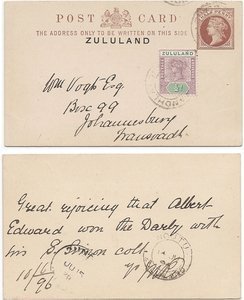 POST CARD
THE ADDRESS ONLY TO BE WRITTEN ON THIS SIDE
ZULULAND
ZULULAND
Wm Vogh Esq
Box 99
Johannesburg
Transvaal
Great rejoicing that Albert
Edward won the Darby with
his St Simon colt
10/6/96